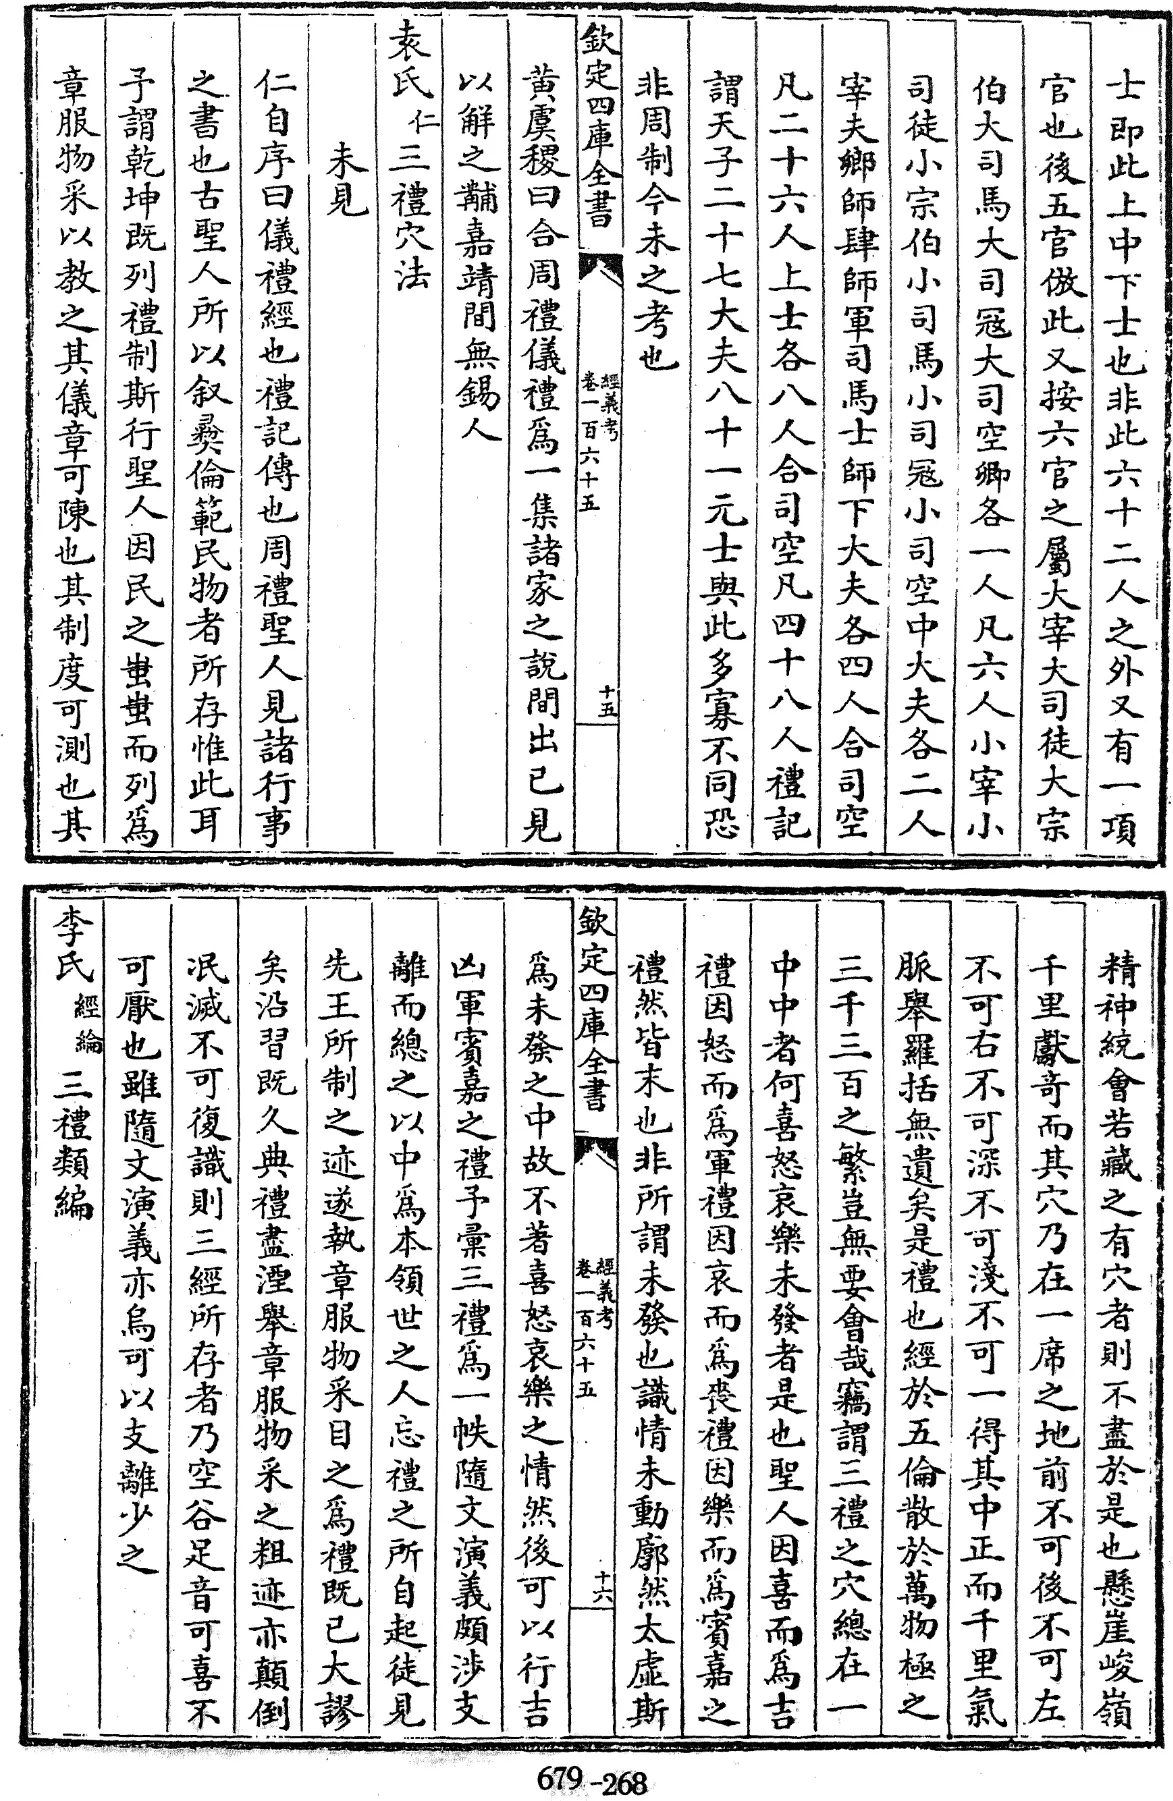 士即此上中下士也非此六十二人之外又有一項
官也後五官倣此又按六官之屬大宰大司徒大宗
伯大司馬大司冦大司空卿各一人凡六人小宰小
司徒小宗伯小司馬小司冦小司空中大夫各二人
宰夫鄉師肆師軍司馬士師下大夫各四人合司空
凡二十六人上士各八人合司空凡四十八人禮記
謂天子二十七大夫八十一元士與此多寡不同恐
非周制今未之考也
欽定四庫全書
經義考
卷一百六十五
十五
黄虞稷曰合周禮儀禮爲一集諸家之說間出已見
以解之黼嘉靖間無錫人
袁氏仁三禮穴法
未見
仁自序曰儀禮經也禮記傳也周禮聖人見諸行事
之書也古聖人所以叙彛倫範民物者所存惟此耳
子謂乾坤既列禮制斯行聖人因民之蚩蚩而列爲
章服物采以教之其儀章可陳也其制度可測也其
精神統會若藏之有穴者則不盡於是也懸崖峻嶺
千里獻竒而其穴乃在一席之地前不可後不可左
不可右不可深不可淺不可一得其中正而千里氣
脈舉羅括無遺矣是禮也經於五倫散於萬物極之
三千三百之繁豈無要會哉竊謂三禮之穴總在一
中中者何喜怒哀樂未發者是也聖人因喜而爲吉
禮因怒而爲軍禮因哀而爲喪禮因樂而爲賓嘉之
禮然皆末也非所謂未發也識情未動廓然太虛斯
欽定四庫全書
經義考
卷一百六十五
十六
爲未發之中故不著喜怒哀樂之情然後可以行吉
凶軍賓嘉之禮予彙三禮爲一帙隨文演義頗涉支
離而總之以中爲本領世之人忘禮之所自起徒見
先王所制之迹遂執章服物采目之爲禮既已大謬
矣沿習既久典禮盡湮舉章服物采之粗迹亦顛倒
泯滅不可復識則三經所存者乃空谷足音可喜不
可厭也雖隨文演義亦烏可以支離少之
李氏經綸三禮類編
679-268